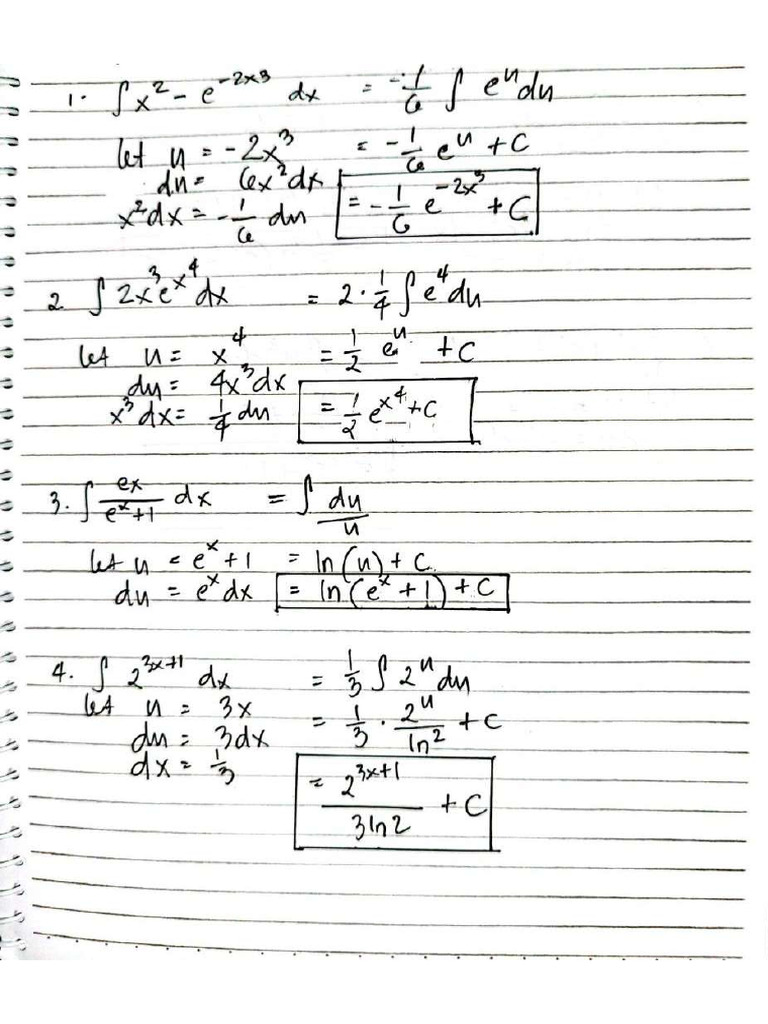 1. ∫x² - e^(-2x³) dx = -1/6 ∫ e^u du
let u = -2x³ = -1/6 e^u + C
du = 6x²dx = -1/6 e^(-2x³) + C
x²dx = -1/6 du
2 ∫ 2x³e^(x⁴) dx = 2 · 1/4 ∫ e⁴ du
let u = x⁴ = 1/2 e^u + C
du = 4x³dx
x³dx = 1/4 du = 1/2 e^(x⁴) + C
3. ∫ ex/(e^x+1) dx = ∫ du/u
let u = e^x + 1 = ln(u) + C
du = e^x dx = ln(e^x + 1) + C
4. ∫ 2^(3x+1) dx = 1/3 ∫ 2^u du
let u = 3x = 1/3 · 2^u/ln2 + C
du = 3dx
dx = 1/3 = 2^(3x+1)/3ln2 + C